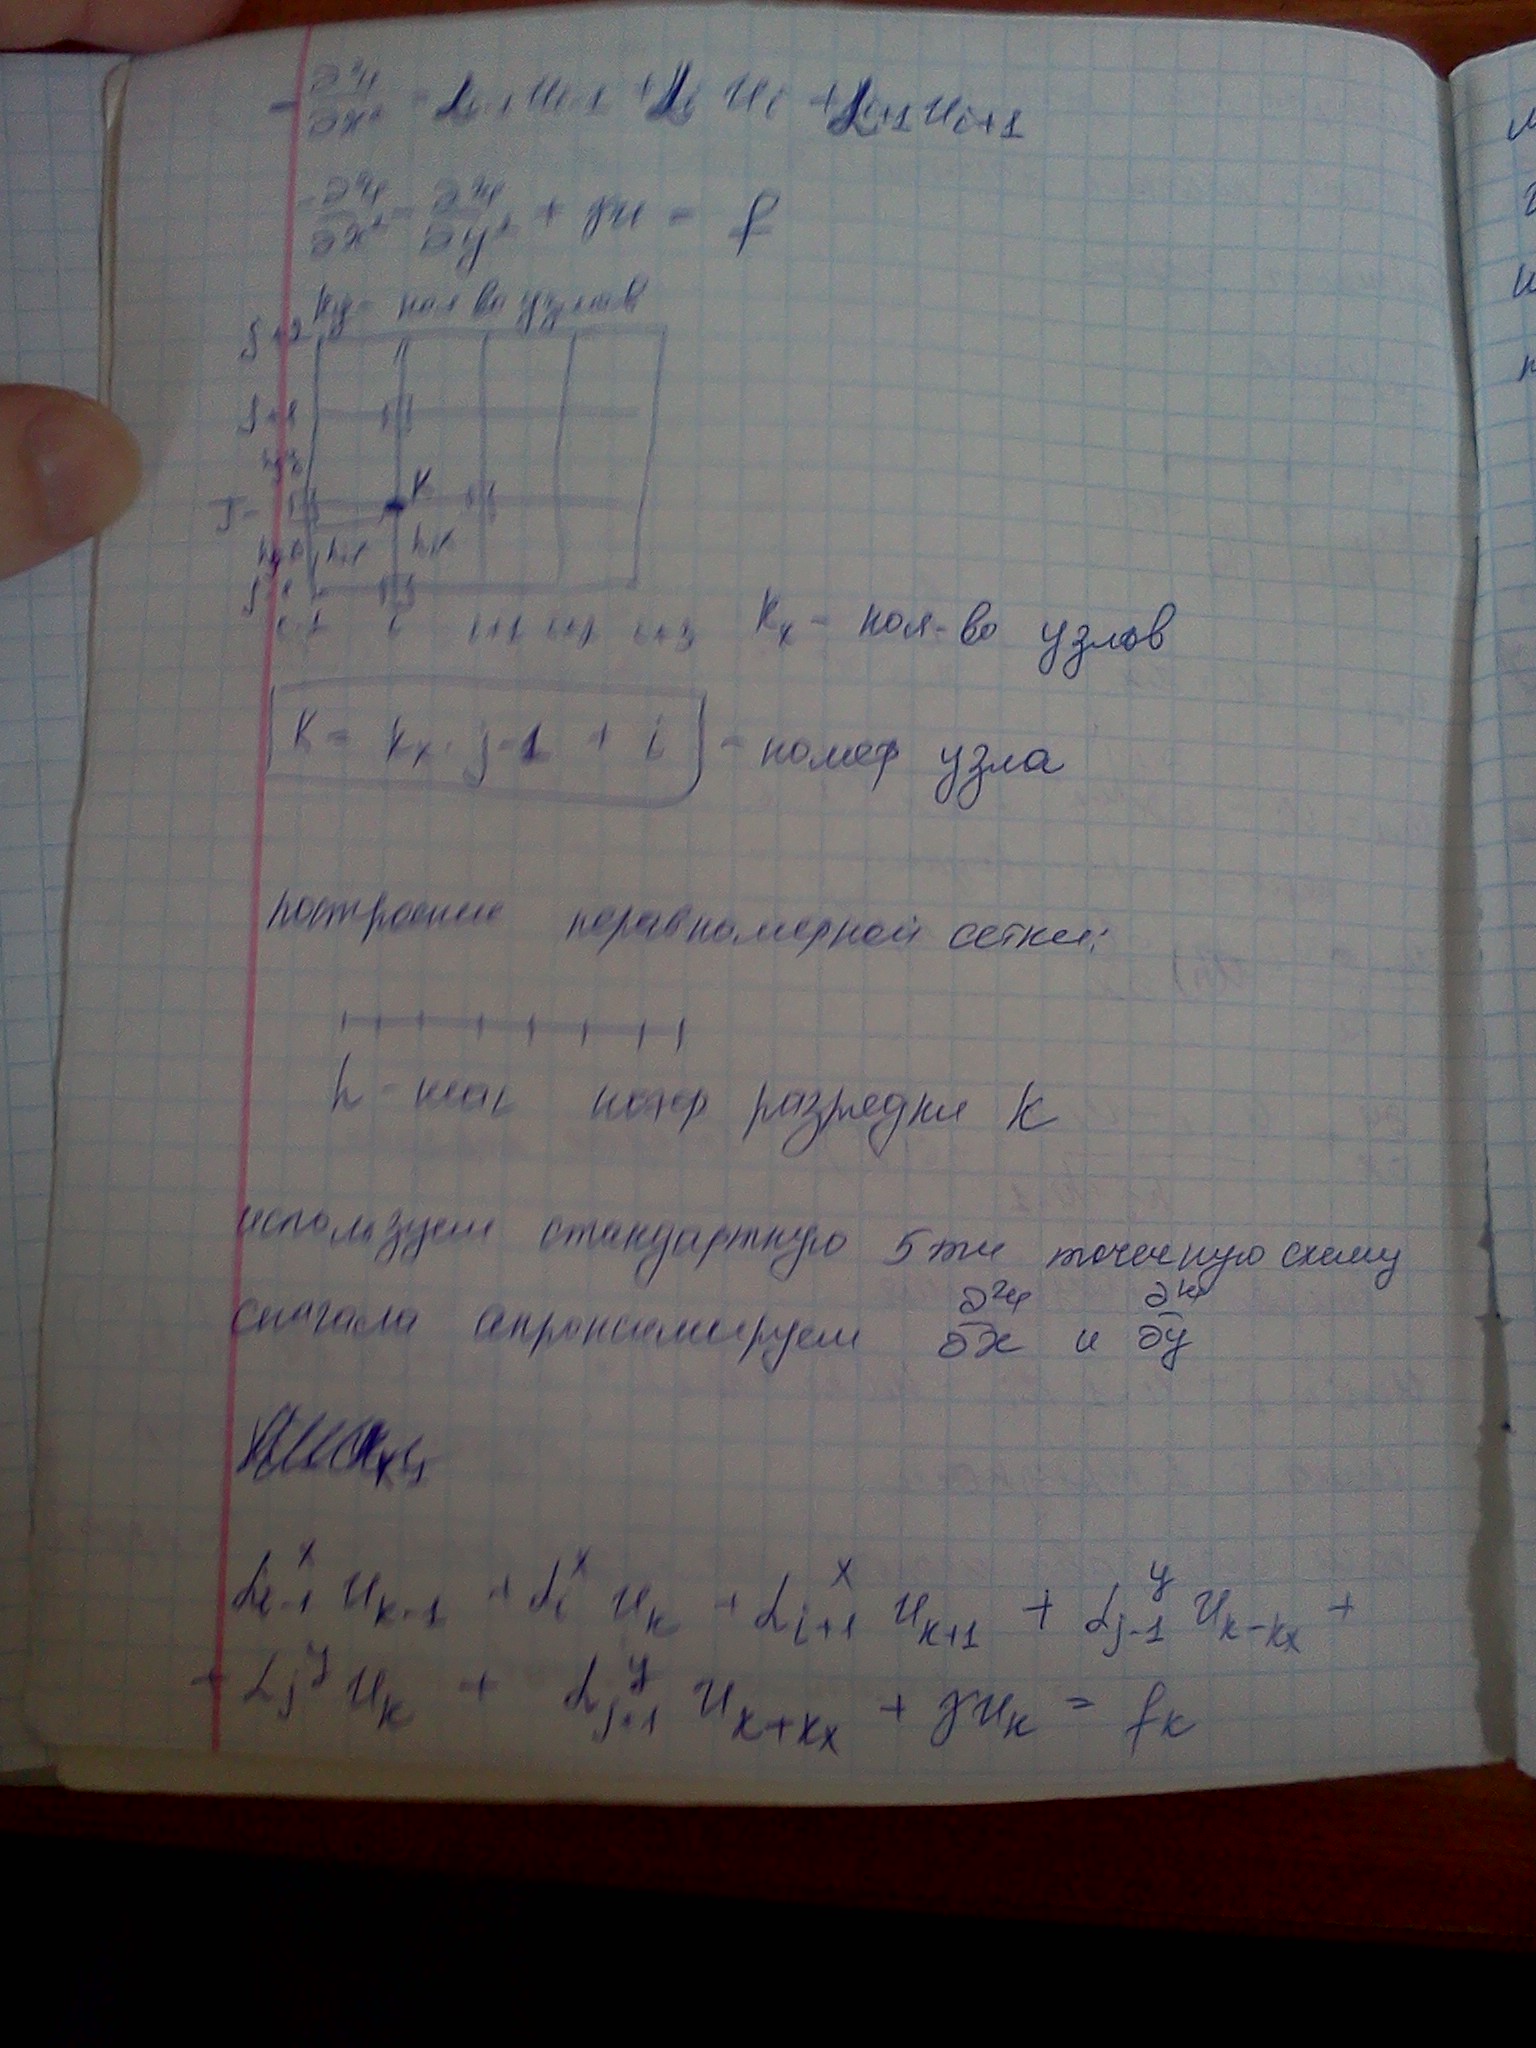 - ∂²u/∂x² = α_{i-1} u_{i-1} + α_i u_i + α_{i+1} u_{i+1}
- ∂²u/∂x² - ∂²u/∂y² + γu = f
Ky - кол-во узлов
j+2
j+1
K
J
hix
j-1
i-1 i i+1 i+3
Kx - кол-во узлов
K = Kx · j-1 + i - номер узла
построение неравномерной сетки:
h - шаг коэф разрядки K
используем стандартную 5ти точечную схему
сначала апроксимируем ∂²u/∂x и ∂²u/∂y
α_{i-1}^x u_{k-1} + α_i^x u_k + α_{i+1}^x u_{k+1} + α_{j-1}^y u_{k-kx} +
+ α_j^y u_k + α_{j+1}^y u_{k+kx} + γu_k = f_k